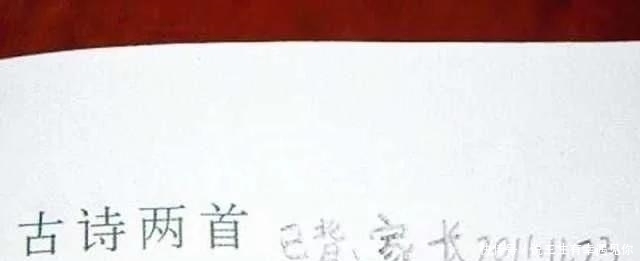 古诗两首 已背、家长 2011.11.23